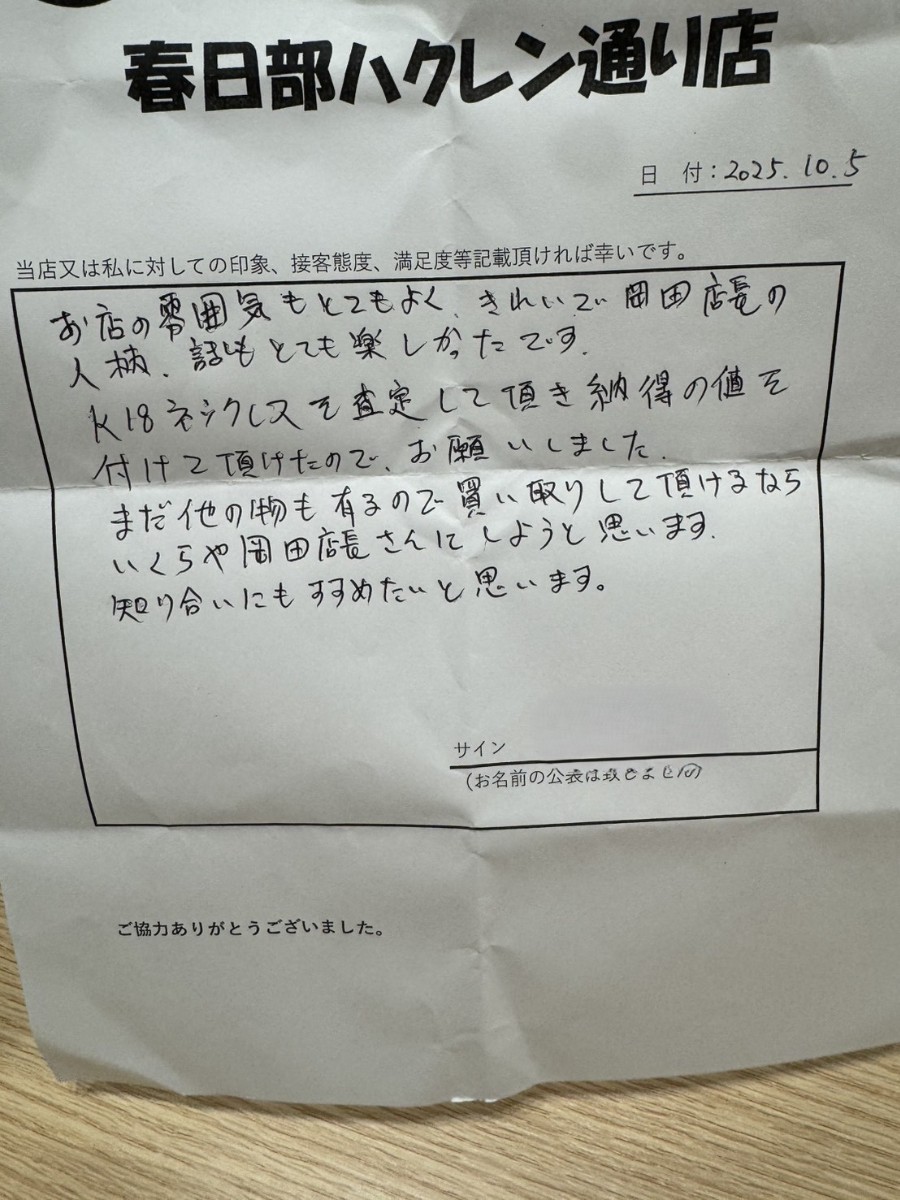 春日部ハクレン通り店
日 付：2025.10.5
当店又は私に対しての印象、接客態度、満足度等記載頂ければ幸いです。
お店の雰囲気もとてもよく、きれいで岡田店長の
人柄、話もとても楽しかったです.
K18ネックレスを査定して頂き納得の値を
付けて頂けたので、お願いしました.
まだ他の物も有るので買い取りして頂けるなら
いくらや岡田店長さんにしようと思います.
知り合いにもすすめたいと思います。
サイン
(お名前の公表は
ご協力ありがとうございました。